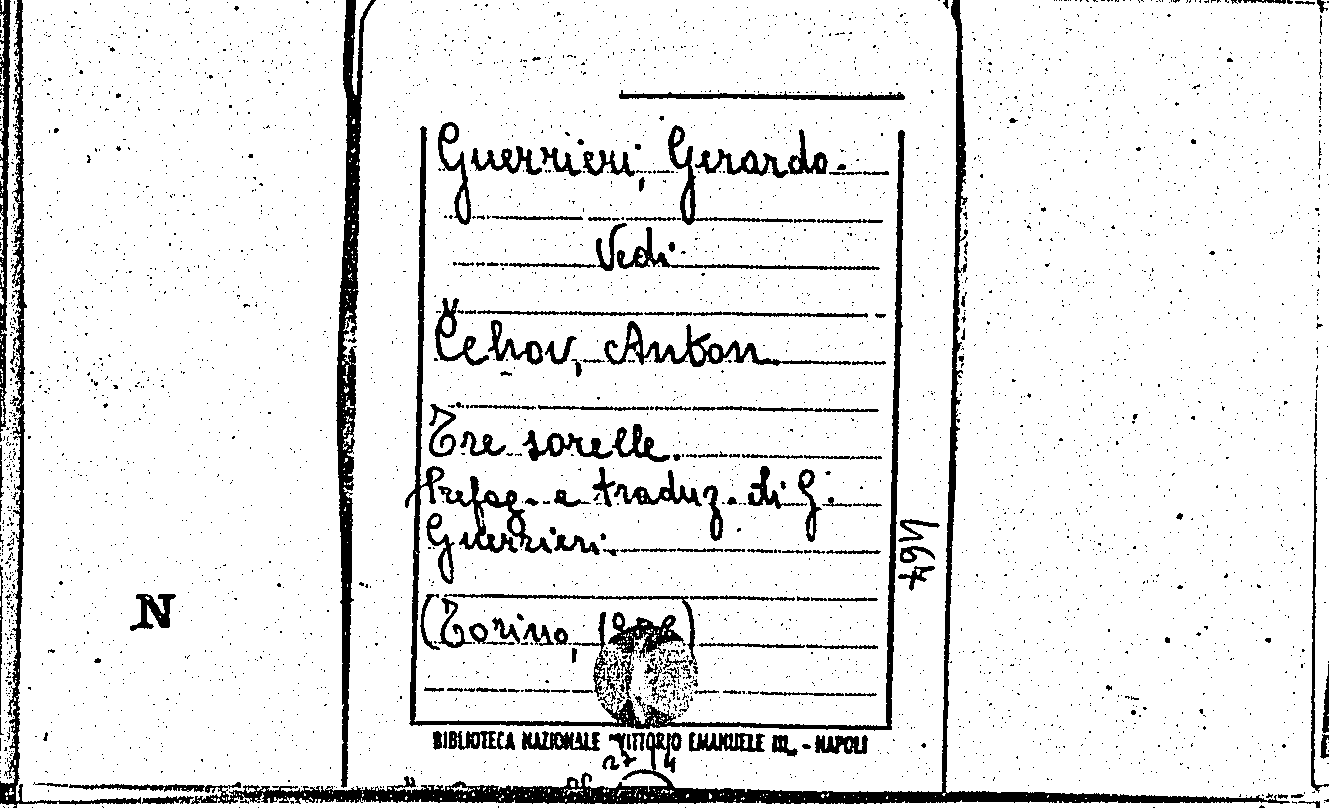 Guerrieri, Gerardo.
Vedi
Čehov, Anton
Tre sorelle.
Prefaz. e traduz. di G.
Guerrieri.
(Torino,
N
BIBLIOTECA NAZIONALE "VITTORIO EMANUELE III„ - NAPOLI